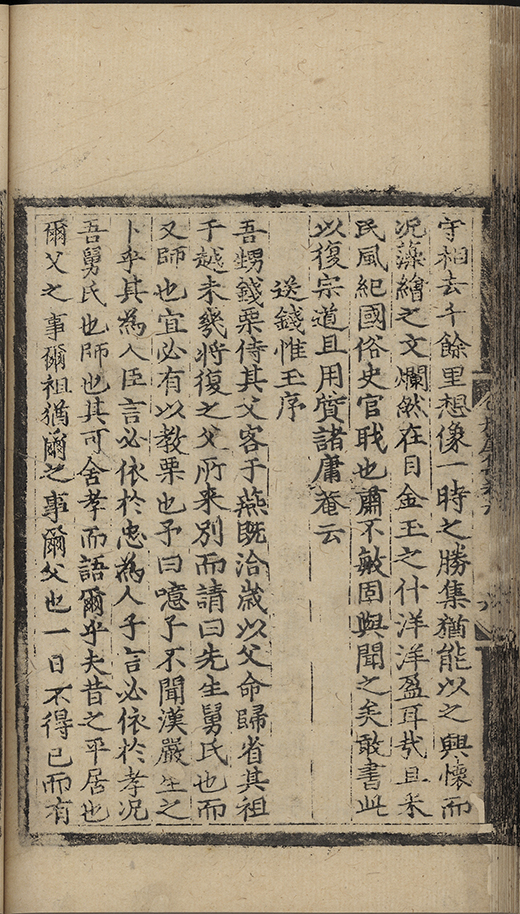 守相去千餘里想像一時之勝集猶能以之興懷而
况藻繪之文爛然在目金玉之什洋洋盈耳㦲且采
民風紀國俗史官職也肅不敏固與聞之矣敢書此
以復宗道且用質諸庸菴云
送錢惟玉序
吾甥錢栗侍其父客于燕既洽歲以父命歸省其祖
于越未幾將復之父所来别而請曰先生舅氏也而
又師也宜必有以教栗也予曰噫子不聞漢嚴生之
卜乎其為人臣言必依於忠為人子言必依於孝况
吾舅氏也師也其可舍孝而語爾乎夫昔之平居也
爾父之事爾祖猶爾之事爾父也一日不得已而有